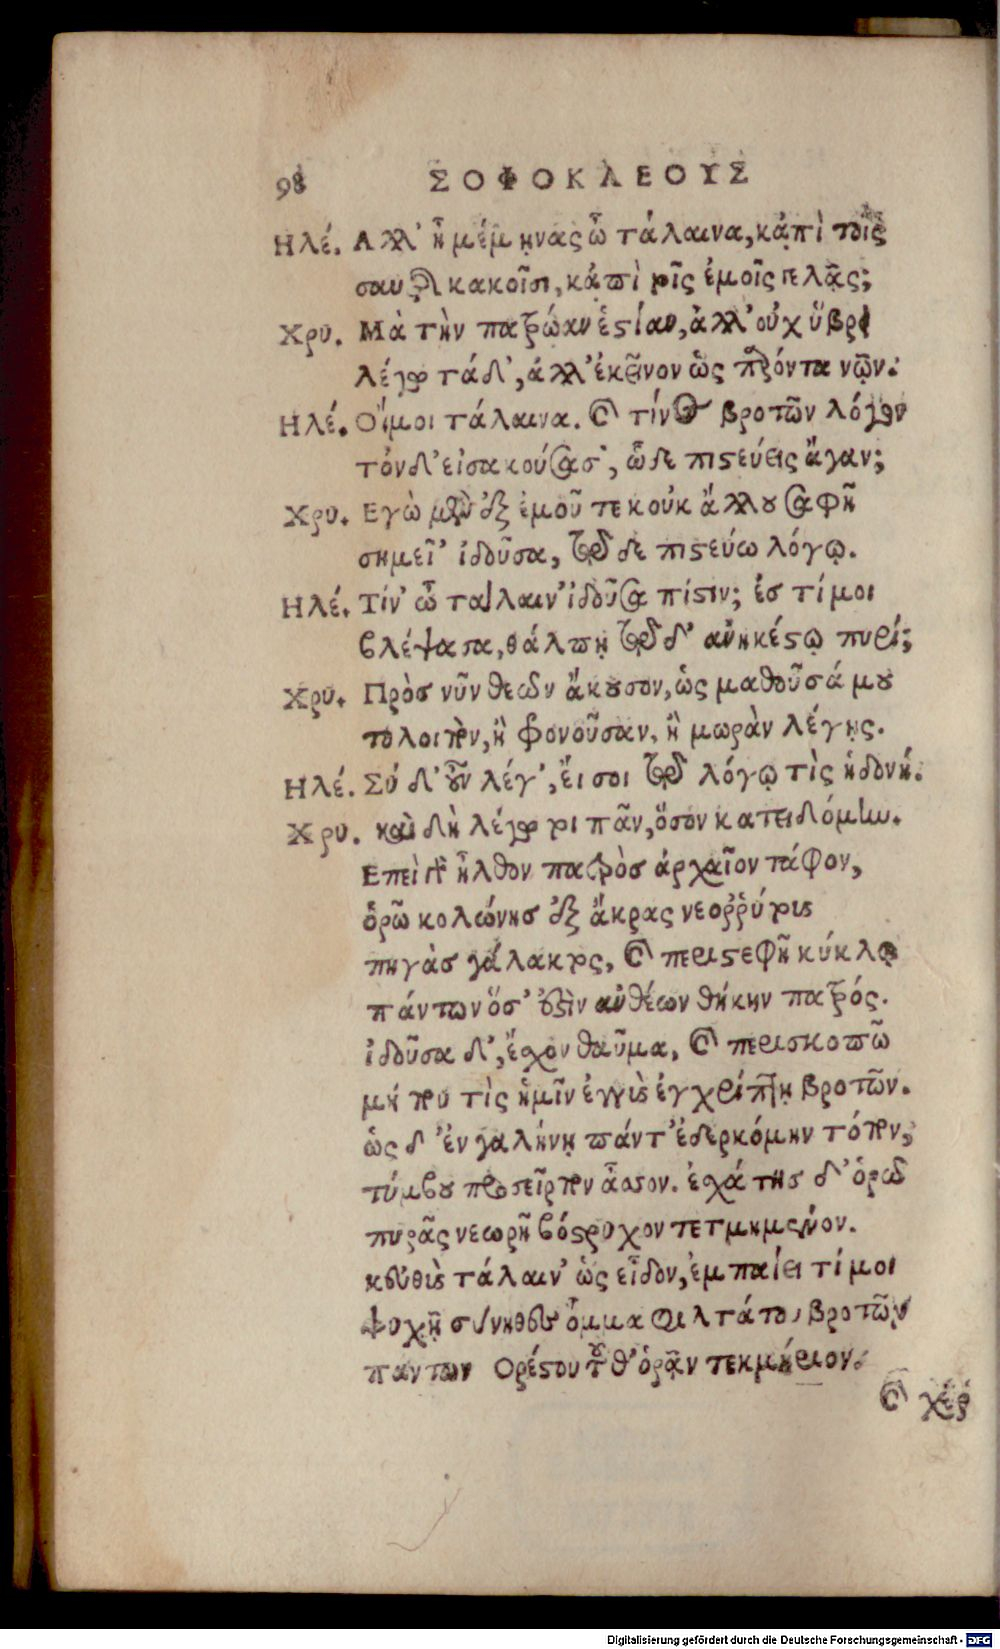 98 ΣΟΦΟΚΛΕΟΥΣ
Ηλέ. Αλλ' ἦ μέμηνας ὦ τάλαινα, κἀπὶ τοῖς
σαυτῆς κακοῖσι, κἀπὶ τοῖς ἐμοῖς γελᾷς;
Χρυ. Μὰ τὴν πατρώαν ἑστίαν, ἀλλ' οὐχ ὕβρει
λέγω τάδ', ἀλλ' ἐκεῖνον ὡς παρόντα νῷν.
Ηλέ. Οἴμοι τάλαινα. καὶ τίνος βροτῶν λόγον
τόνδ' εἰσακούσασ', ὧδε πιστεύεις ἄγαν;
Χρυ. Εγὼ μὲν ἐξ ἐμοῦ τε κοὐκ ἄλλου σαφῆ
σημεῖ' ἰδοῦσα, τῷδε πιστεύω λόγῳ.
Ηλέ. Τίν' ὦ τάλαιν' ἰδοῦσα πίστιν; ἐσ τί μοι
βλέψασα, θάλπῃ τῷδ' ἀνηκέστῳ πυρί;
Χρυ. Πρὸσ νῦν θεῶν ἄκουσον, ὡς μαθοῦσά μου
τολοιπὸν, ἢ φρονοῦσαν, ἢ μωρὰν λέγῃς.
Ηλέ. Σύ δ' οὖν λέγ', εἴ σοι τῷ λόγῳ τὶς ἡδονή.
Χρυ. καὶ δὴ λέγω σοι πᾶν, ὅσον κατειδόμην.
Επεὶ γὰρ ἦλθον πατρὸσ ἀρχαῖον τάφον,
ὁρῶ κολώνησ ἐξ ἄκρας νεοῤῥύτους
πηγὰσ γάλακτος, καὶ περιστεφῆ κύκλῳ
πάντων ὅσ' ἐστὶν ἀνθέων θήκην πατρός.
ἰδοῦσα δ', ἔσχον θαῦμα, καὶ περισκοπῶ
μή που τὶς ἡμῖν ἐγγὺς ἐγχρίπτῃ βροτῶν.
ὡς δ' ἐν γαλήνῃ πάντ' ἐδερκόμην τόπον,
τύμβου προσεῖρπον ἆσσον. ἐσχάτησ δ' ὁρῶ
πυρᾶς νεωρῆ βόστρυχον τετμημένον.
κεὐθὺς τάλαιν' ὡς εἶδον, ἐμπαίει τί μοι
ψυχῇ σύνηθες ὄμμα φιλτάτου βροτῶν
πάντων Ορέστου τοῦθ' ὁρᾷν τεκμήριον.
καὶ χέρ
Digitalisierung gefördert durch die Deutsche Forschungsgemeinschaft - DFG